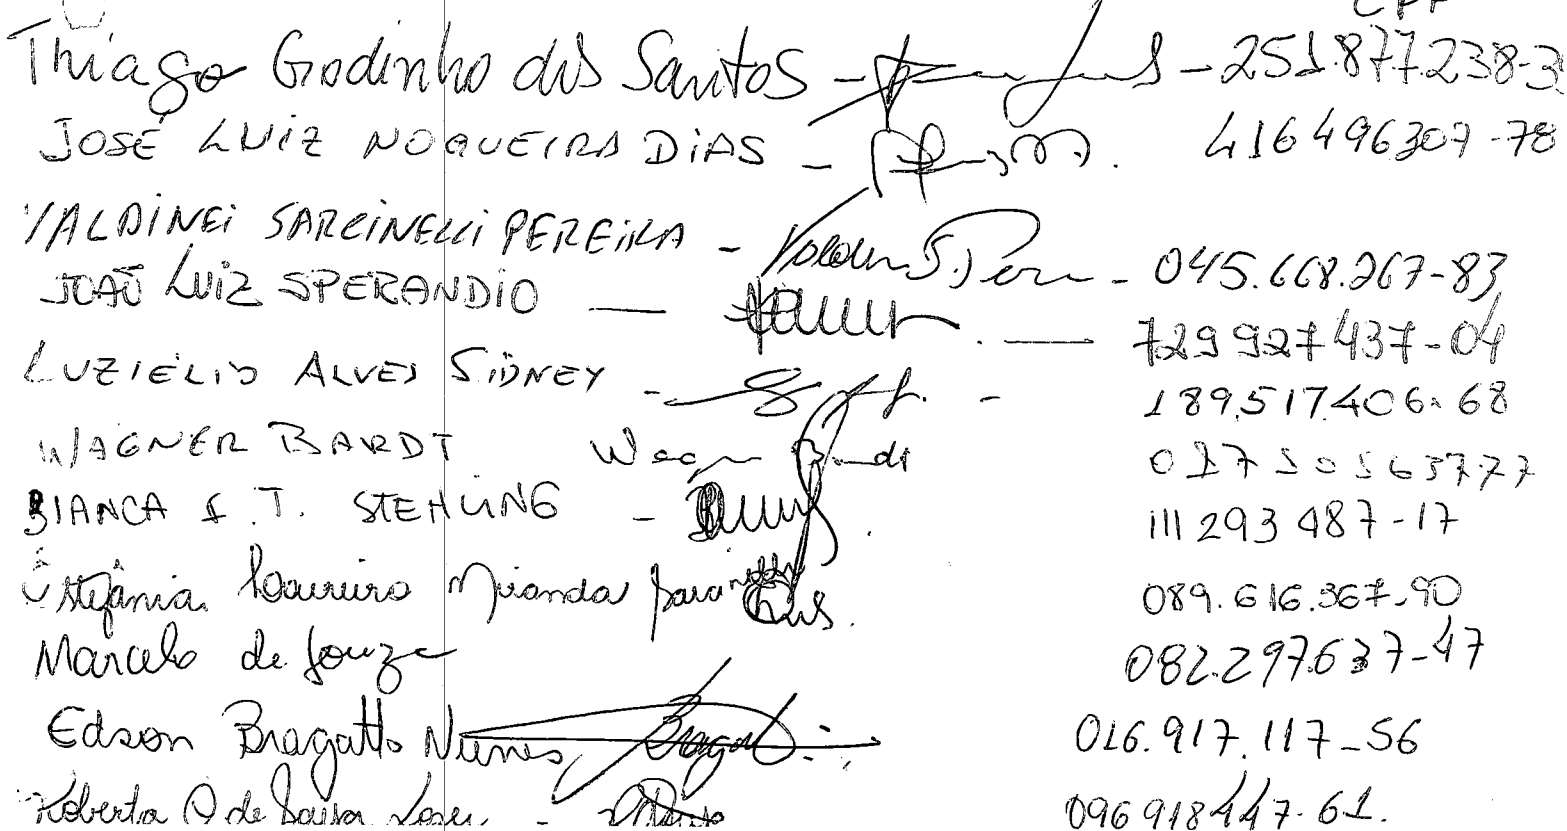 CPF
Thiago Godinho dos Santos - - 251.877.238-3
JOSÉ LUIZ NOGUEIRA DIAS - 416 496307-78
VALDINEI SARCINELLI PEREIRA - - 045.668.267-83
JOÃO LUIZ SPERANDIO — — 729 927 437-04
LUZIÉLIO ALVES SIDNEY - - 189.517.406-68
WAGNER BARDT Wagner Bardt
BIANCA T. STEHLING - 111 293 487-17
Estefânia Loureiro Miranda 089.616.367-90
Marcelo de Souza 082.297.637-47
Edson Bragatto Nunes 016.917.117-56
Roberta de - 096 918 447-61.